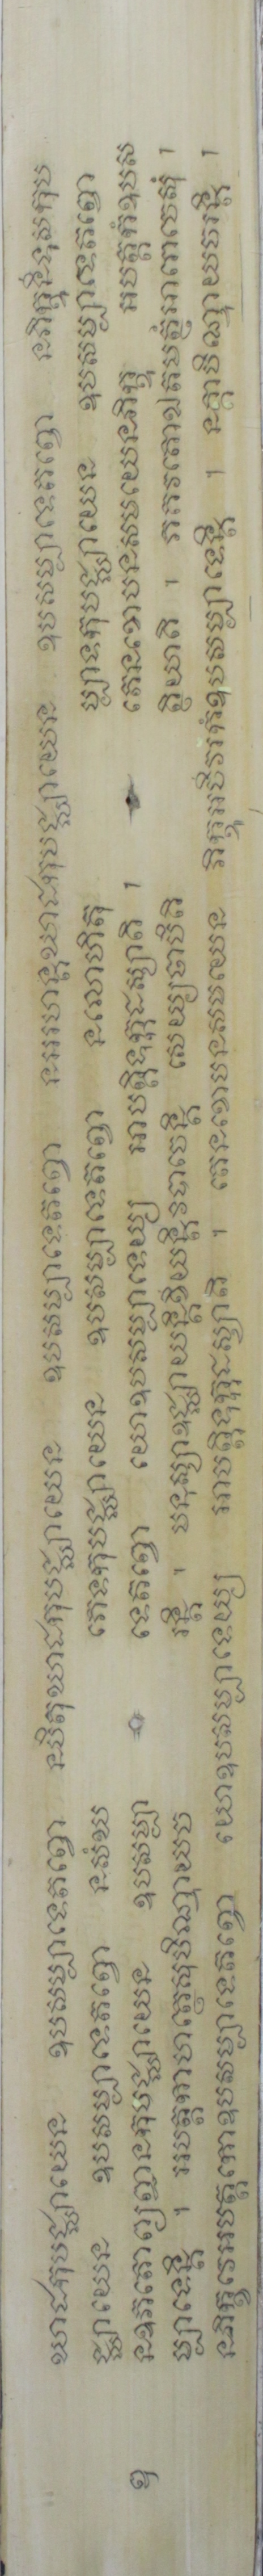 ឃាដកុបជ្ឈាយេន ឧបសម្បាទេតព្វោ នបិតុឃាដកុបជ្ឈាយេន ឧបសម្បាទេតព្វោ នអរហន្តឃាដកុបជ្ឈាយេន ឧបសម្បាទេតព្វោ នភិក្ខុនីទុសកុប
ជ្ឈាយេន ឧបសម្បាទេតព្វោ នសំឃ ភេទកុបជ្ឈាយេន ឧបសម្បាទេតព្វោ នលោហិតុ ប្បាទកុបជ្ឈាយេន ឧបសម្បាទេតព្វោ
នឧភតោព្យញ្ជនកុបជ្ឈាយេន ឧបសម្បា ទេតព្វោ យោឧបសម្បាទេយ្យ អាបត្តិទុក្កដស្សាតិ ។ តេនខោបនសមយេនភិក្ខូ អបត្តកំឧបស
ម្បាទេន្តិ ។ អបត្តកាហត្ថេសុបិណ្ឌាយច រន្តិ ។ មនុស្សាឧជ្ឈាយន្តិខីយន្តិវិបាចេន្តិ សេយ្យថាបិតិ ត្ថិយាតិ ។ ភគវតោឯតមត្ថំអារោចេសុំ ។
នភិក្ខវេអបត្តកោឧបសម្បាទេតព្វោ យោឧបសម្បាទេយ្យ អាបត្តិទុក្កដស្សាតិ ។ តេនខោបនសមយេន ភិក្ខូអចីវរកំឧបសម្បាទេន្តិ ។ នគ្គាបិណ្ឌាយចរន្តិ ។